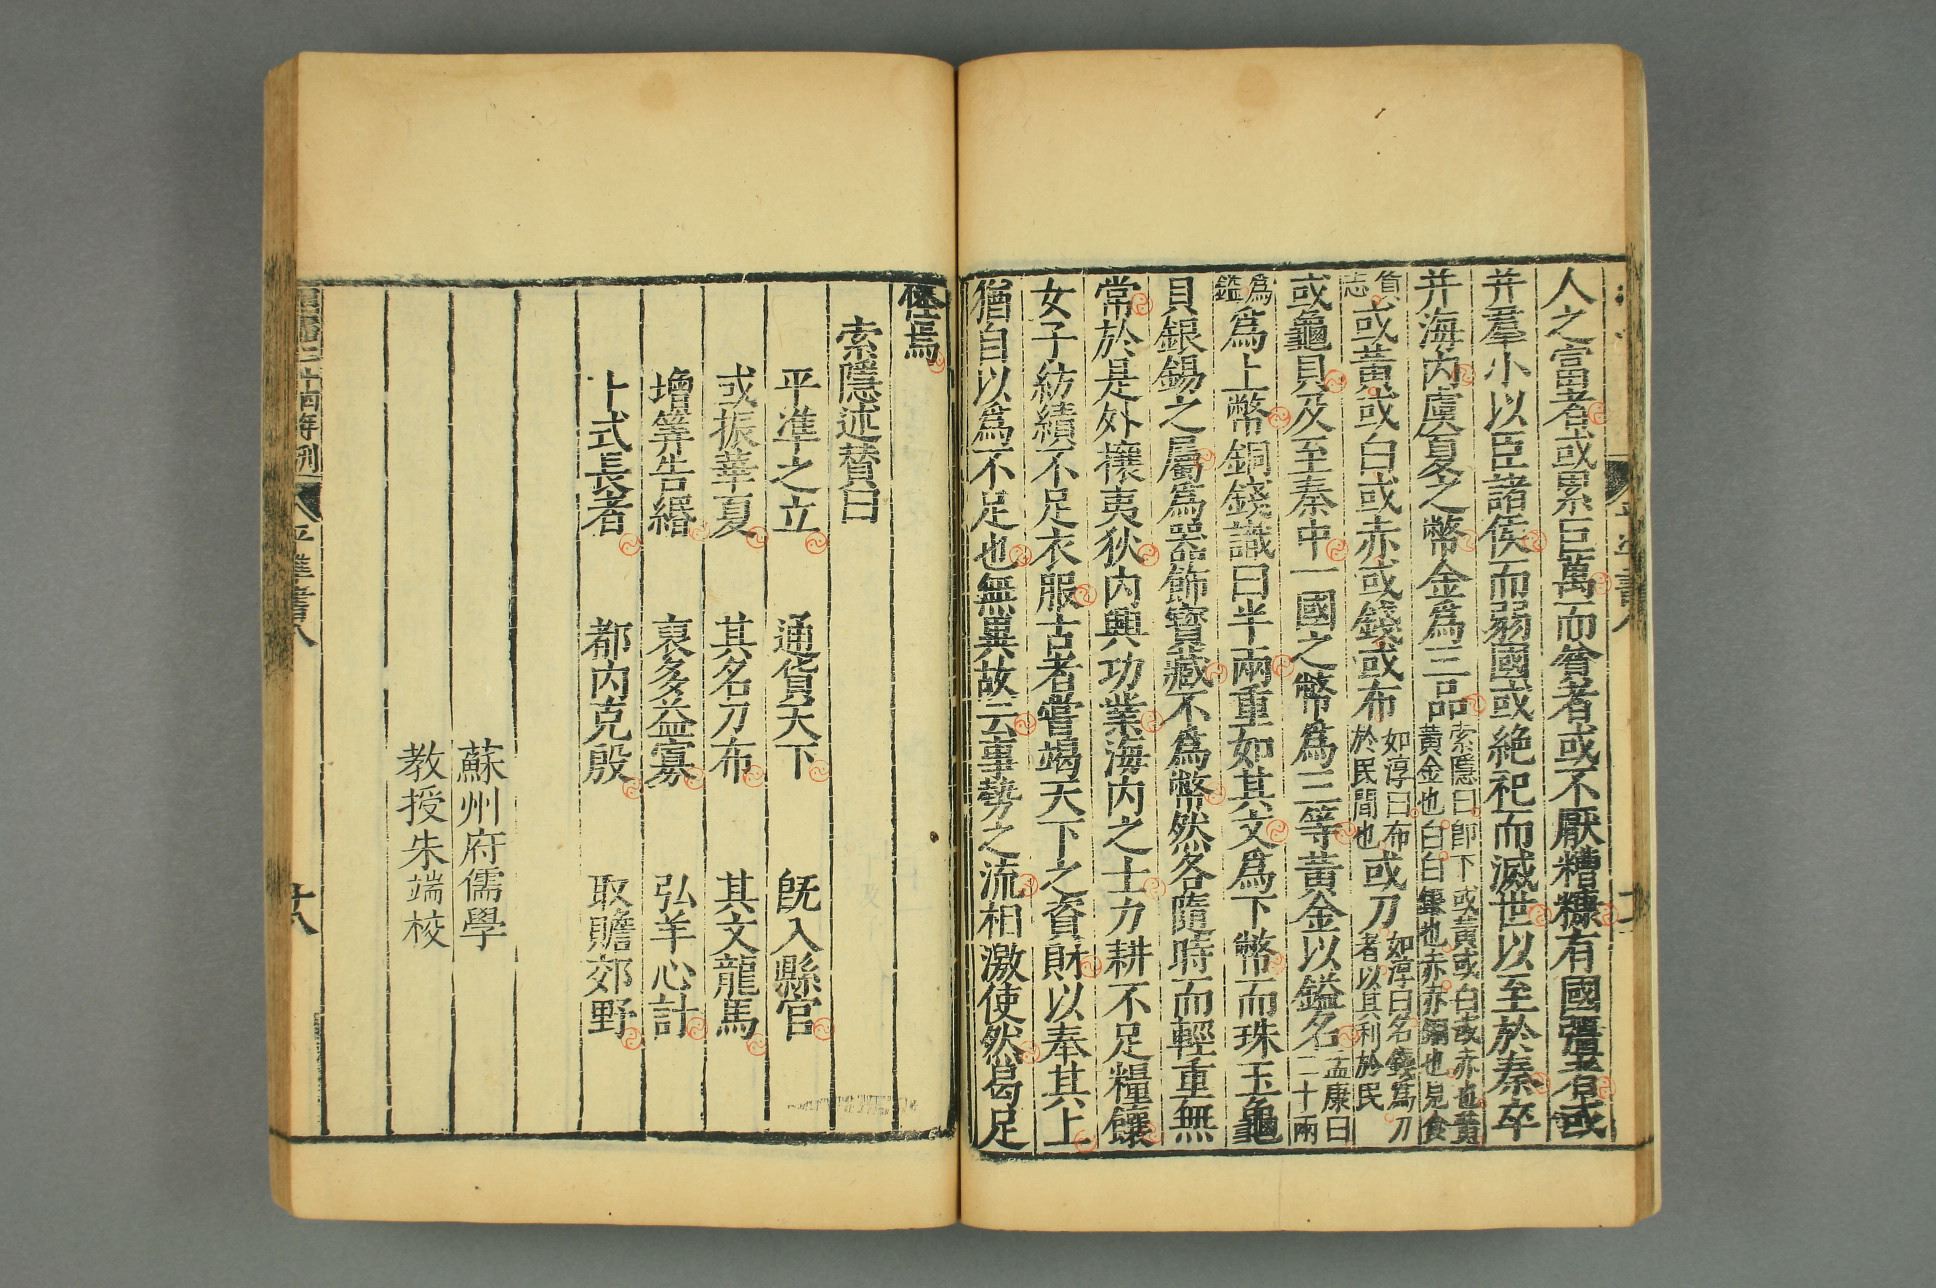 人之富者或累巨萬而貧者或不厭糟糠有國彊者或
并羣小以臣諸侯而弱國或絶祀而滅世以至於秦卒
并海内虞夏之幣金爲三品索隱曰即下或黄或白或赤也黄
黄金也白白銀也赤赤銅也見食
貨
志或黄或白或赤或錢或布如淳曰布
於民間也或刀如淳曰名錢爲刀
者以其利於民
或龜貝及至秦中一國之幣爲三等黄金以鎰名孟康曰
二十兩
爲
鎰爲上幣銅錢識曰半兩重如其文爲下幣而珠玉龜
貝銀錫之屬爲器飾寳藏不爲幣然各隨時而輕重無
常於是外攘夷狄内興功業海内之士力耕不足糧饟
女子紡績不足衣服古者嘗竭天下之資財以奉其上
猶自以爲不足也無異故云事勢之流相激使然曷足
怪焉
索隱述贊曰
平準之立 通貨天下 旣入縣官
或振華夏 其名刀布 其文龍馬
增筭告緡 裒多益寡 弘羊心計
卜式長者 都内克殷 取贍郊野
蘇州府儒學
教授朱端校
平準書八
十八